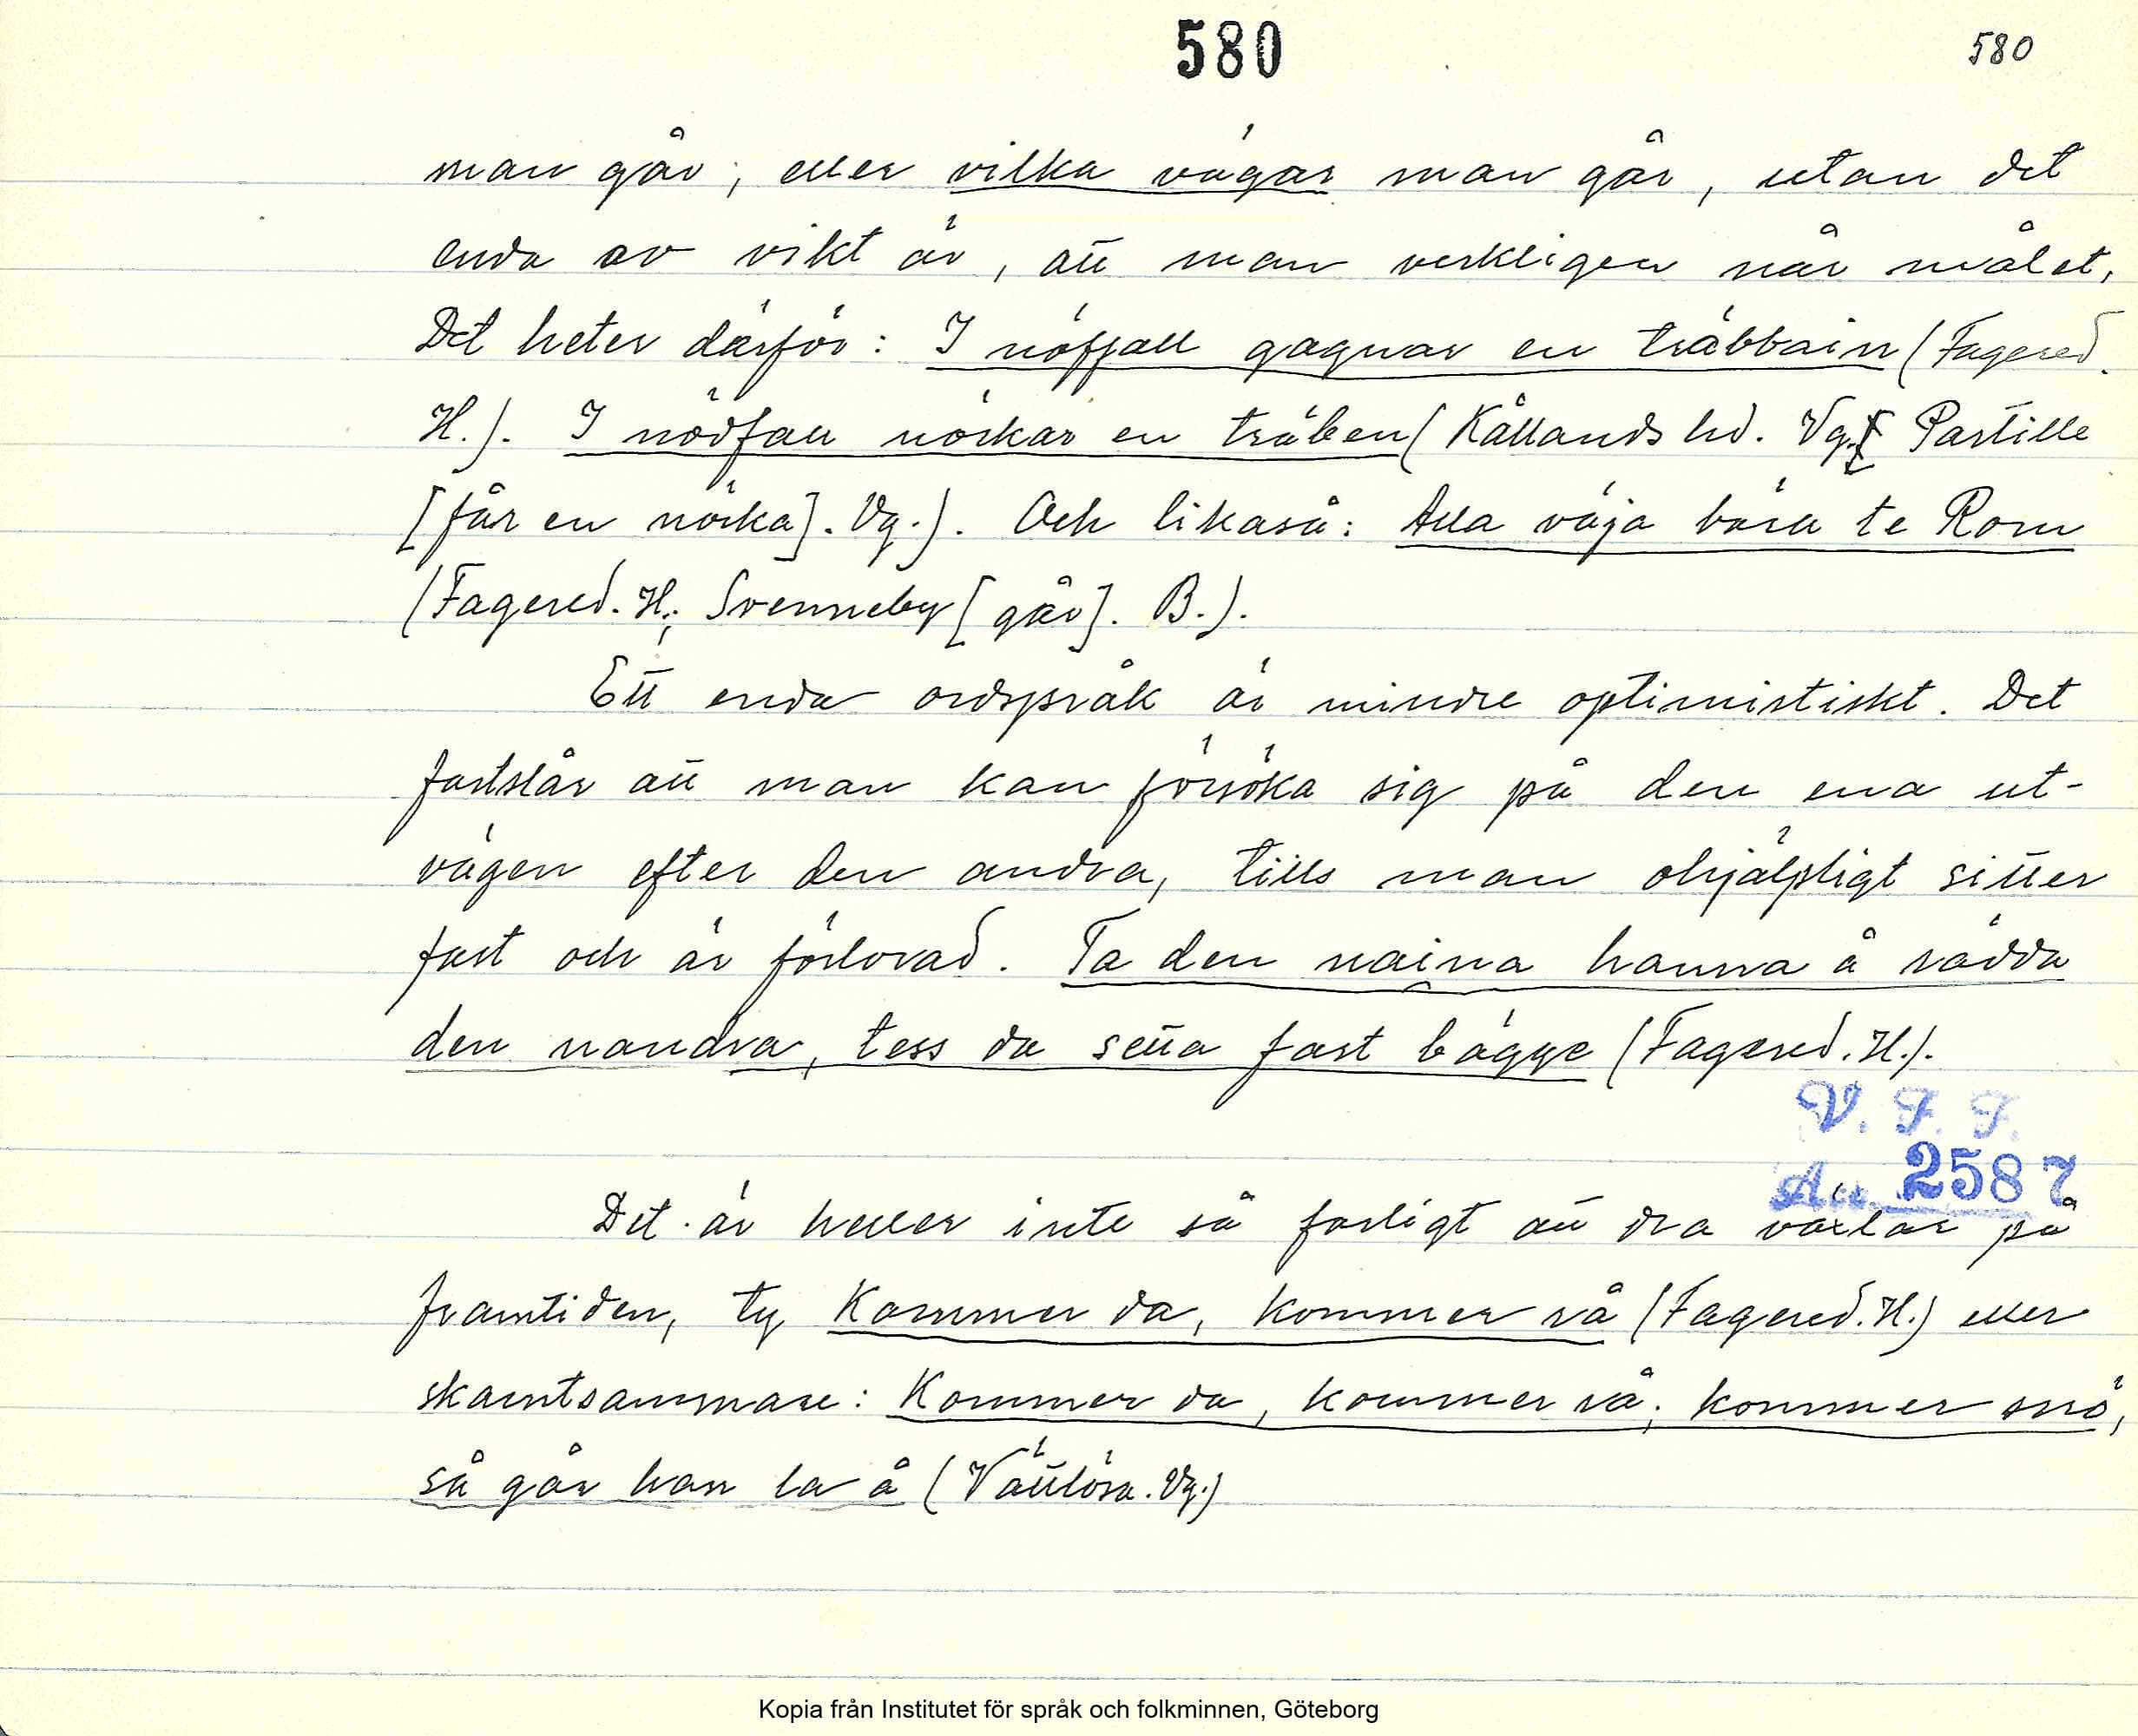 580 580
man går, eller vilka vägar man går, utan det
enda av vikt är, att man verkligen når målet.
Det heter därför: I nöffall gagnar en träbbain (Fagered.
H.). I nödfall nöckar en träben (Kållands hd. Vg. Partille
[får en nöcka]. Vg.). Och likaså: Alla väja bära te Rom
(Fagered. H.; Svenneby [går]. B.).
Ett enda ordspråk är mindre optimistiskt. Det
fastslår att man kan försöka sig på den ena ut-
vägen efter den andra, tills man ohjälpligt sitter
fast och är förlorad. Ta den naina hanna å rädda
den nandra, tess da setta fast bägge (Fagered. H.).
V. F. F.
2587
Det är heller inte så farligt att dra växlar på
framtiden, ty Kommer da, kommer rå (Fagered. H.) eller
skämtsammare: Kommer da, kommer rå, kommer snö,
så går han la å (Vättlösa. Vg.)
Kopia från Institutet för språk och folkminnen, Göteborg